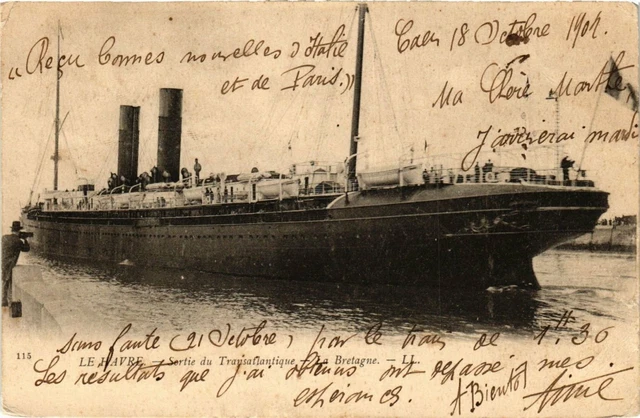 "Reçu bonnes nouvelles d'Italie
et de Paris."
Caen 18 Octobre 1904.
Ma Chère Marthe
J'arriverai mardi
sans faute (21 Octobre) par le train de 1.H 30
115 LE HAVRE. — Sortie du Transatlantique — La Bretagne. — LL.
Les résultats que j'ai obtenus ont dépassé mes
espérances.
A Bientôt
Aimé